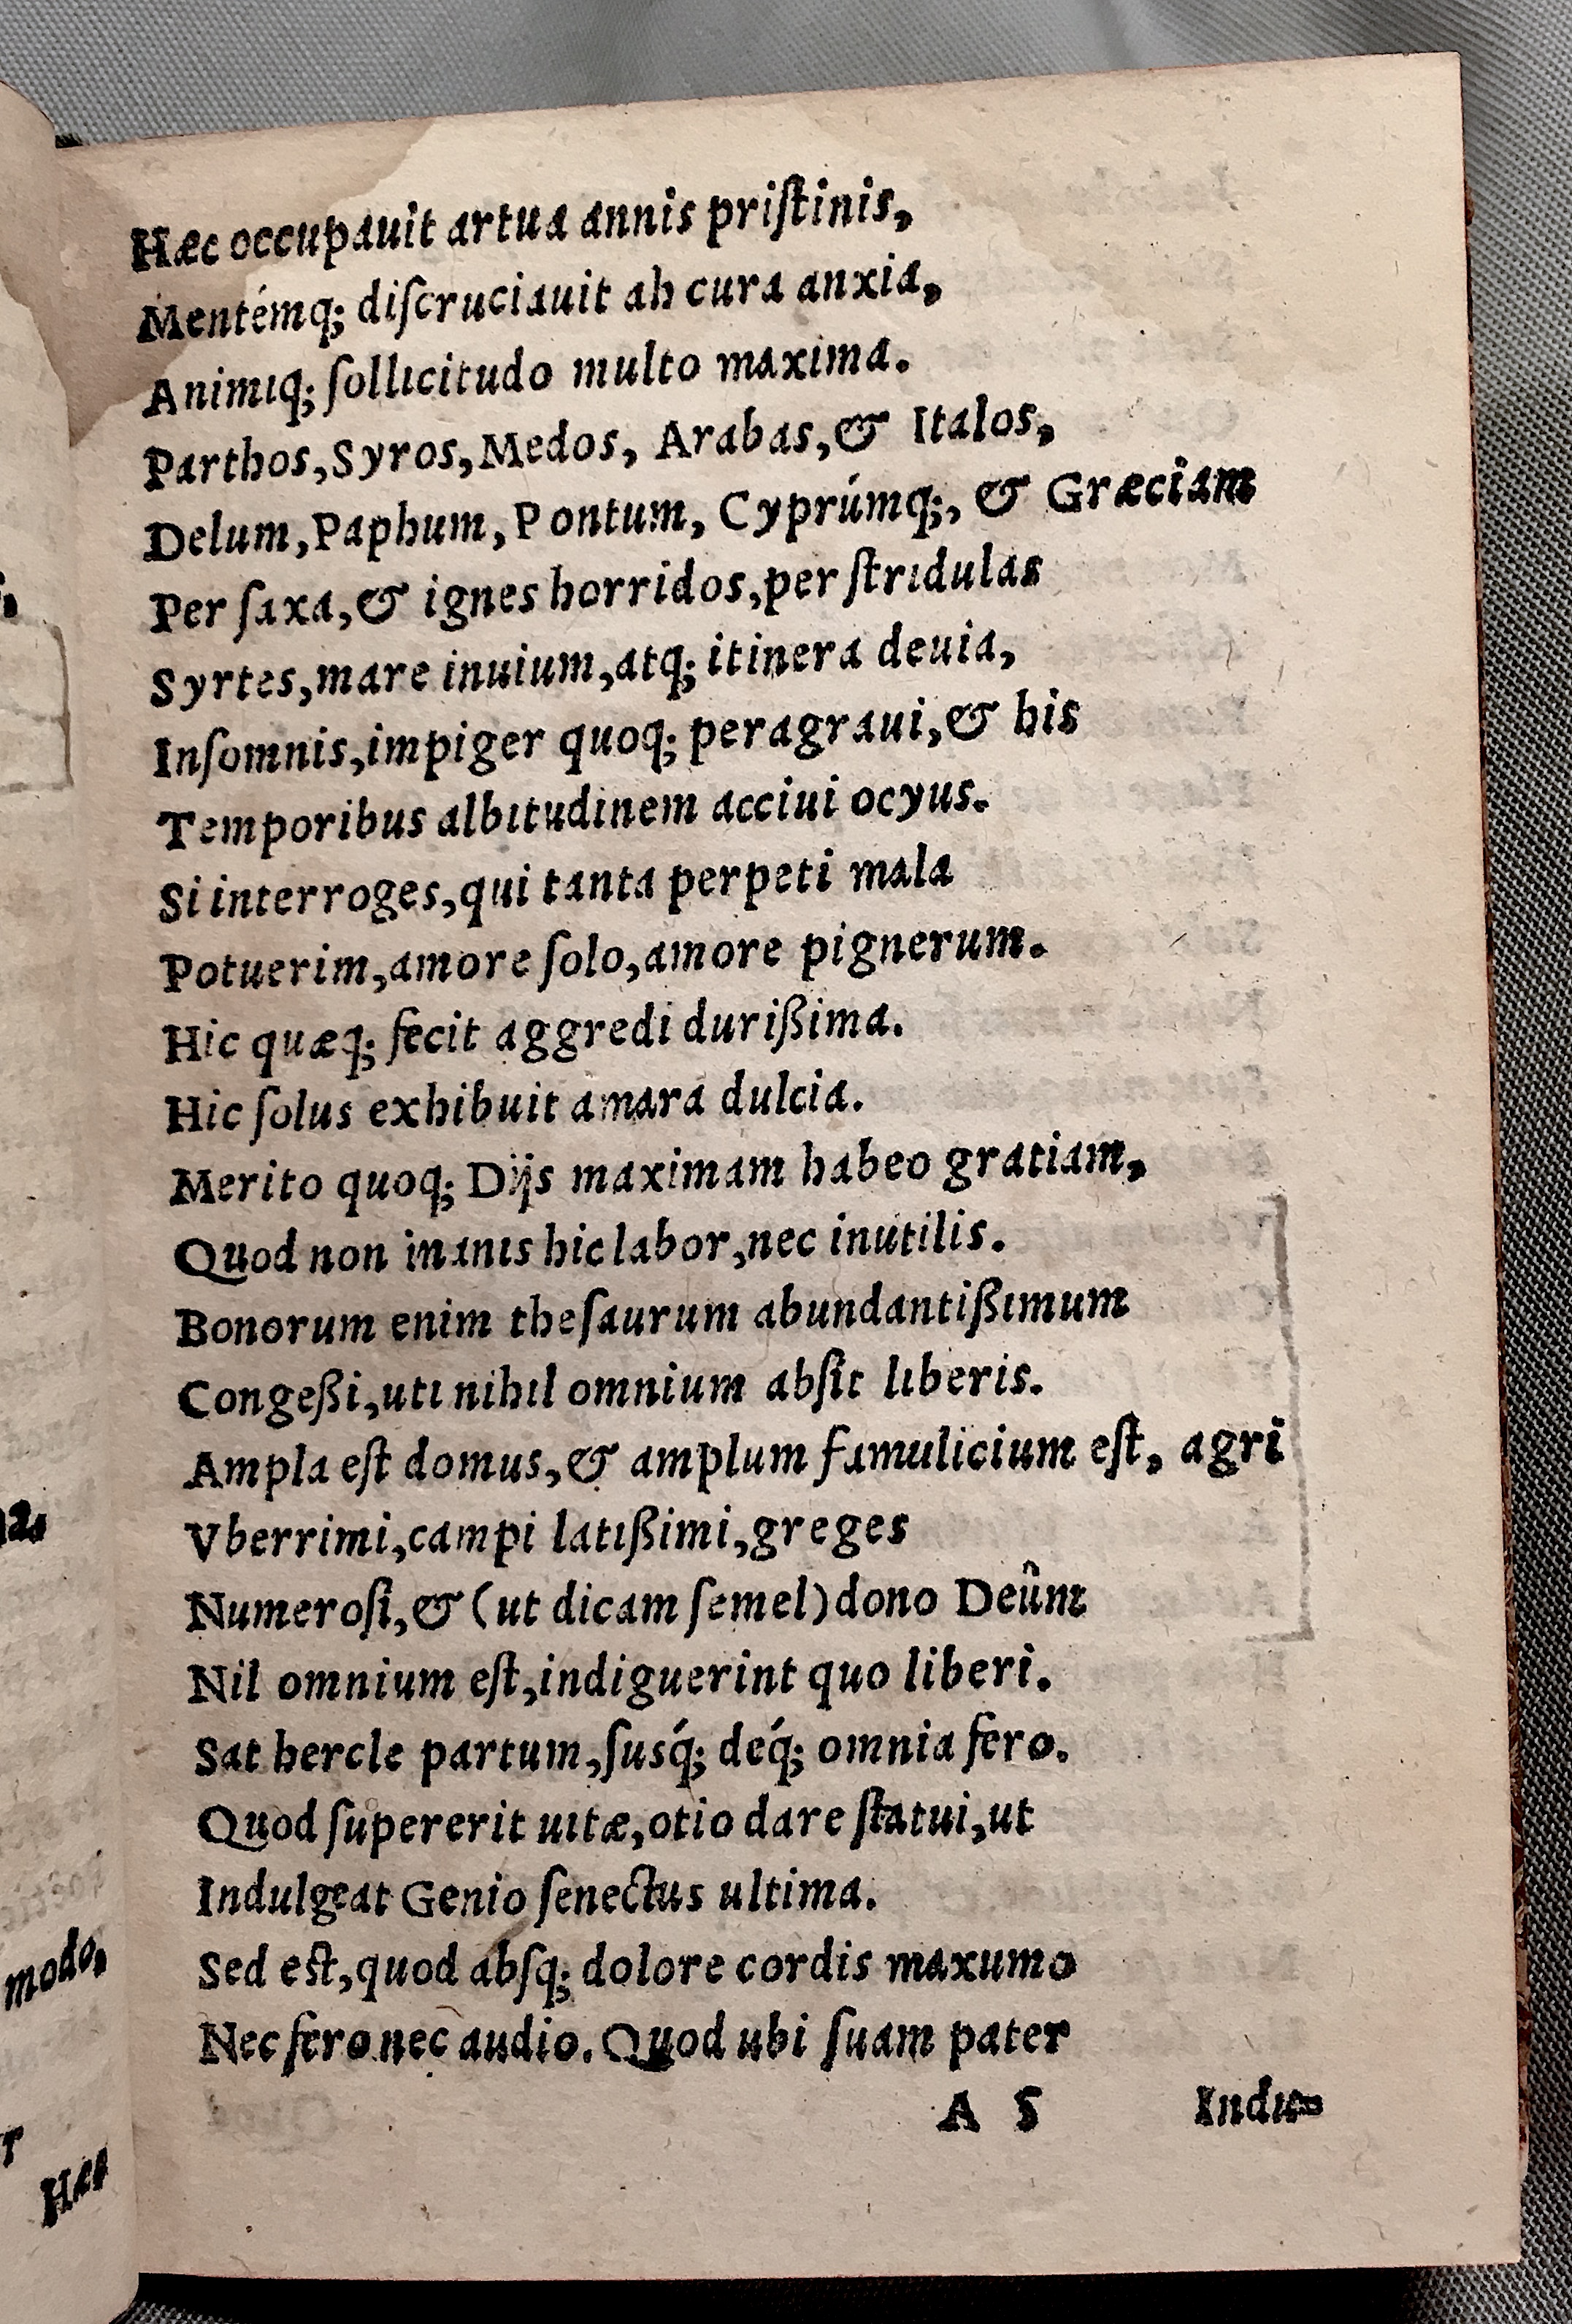 Hæc occupauit artua annis priſtinis,
Mentémq; diſcruciauit ah cura anxia,
Animiq; ſollicitudo multo maxima.
Parthos, Syros, Medos, Arabas, & Italos,
Delum, Paphum, Pontum, Cyprúmq;, & Græciam
Per ſaxa, & ignes horridos, per ſtridulas
Syrtes, mare inuium, atq; itinera deuia,
Inſomnis, impiger quoq; peragraui, & his
Temporibus albitudinem acciui ocyus.
Si interroges, qui tanta perpeti mala
Potuerim, amore ſolo, amore pignerum.
Hic quæq; fecit aggredi durißima.
Hic ſolus exhibuit amara dulcia.
Merito quoq; Dijs maximam habeo gratiam,
Quod non inanis hic labor, nec inutilis.
Bonorum enim theſaurum abundantißimum
Congeßi, uti nihil omnium abſit liberis.
Ampla eſt domus, & amplum famulicium eſt, agri
Vberrimi, campi latißimi, greges
Numeroſi, & (ut dicam ſemel) dono Deûm
Nil omnium eſt, indiguerint quo liberi.
Sat hercle partum, ſusq́; deq́; omnia fero.
Quod ſupererit uitæ, otio dare ſtatui, ut
Indulgeat Genio ſenectus ultima.
Sed eſt, quod abſq; dolore cordis maxumo
Nec fero nec audio. Quod ubi ſuam pater
A 5 Indu-
modo,
r
Hæc